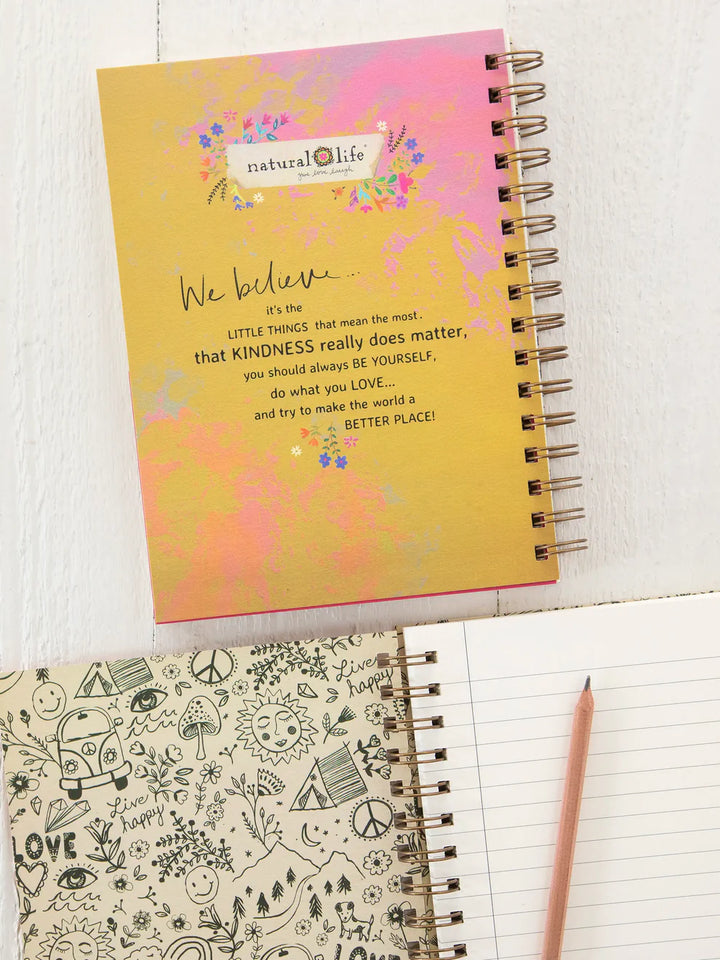 natural life®
give love laugh
We believe...
it's the
LITTLE THINGS that mean the most.
that KINDNESS really does matter,
you should always BE YOURSELF,
do what you LOVE...
and try to make the world a
BETTER PLACE!
Live
happy
Live
happy
LOVE
LOVE